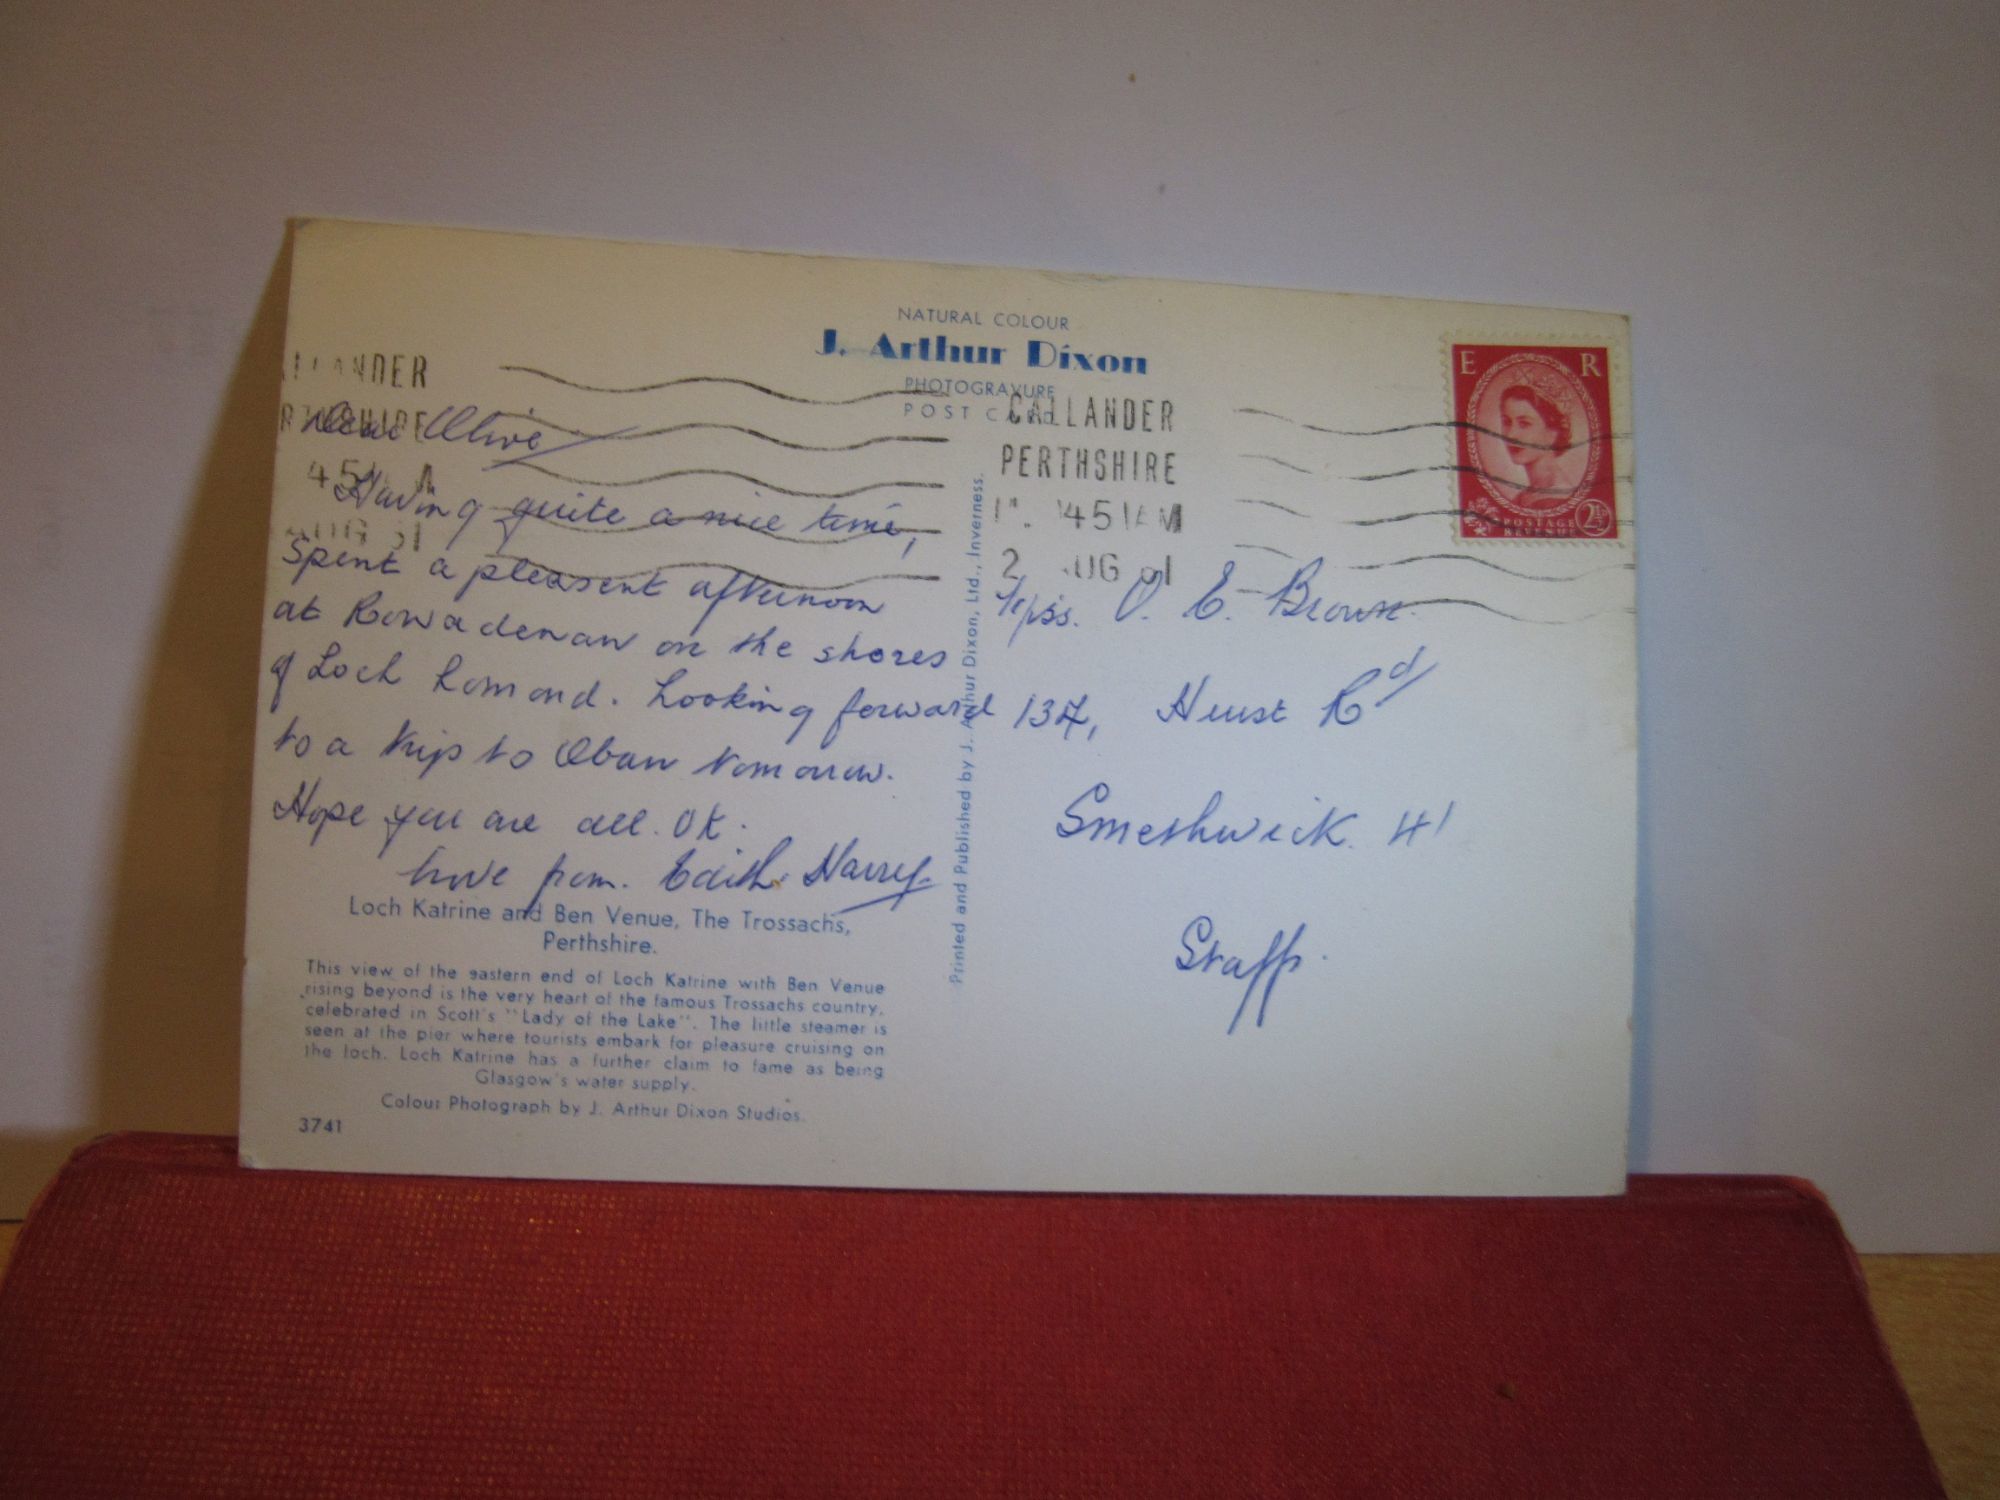 NATURAL COLOUR
J. Arthur Dixon
PHOTOGRAVURE
POST CARD
CALLANDER
PERTHSHIRE
45 AM
2 AUG 61
E R
POSTAGE
REVENUE
2½D
Dear Olive
Having quite a nice time,
Spent a pleasent afternoon
at Rowadenan on the shores
of Loch Lomond. Looking forward
to a trip to Oban tomorrow.
Hope you are all. OK.
Love from. Edith. Harry.
Miss. O. E. Brown.
137, Hurst Rd
Smethwick. 41
Staffs.
Printed and Published by J. Arthur Dixon, Ltd., Inverness.
Loch Katrine and Ben Venue, The Trossachs,
Perthshire.
This view of the eastern end of Loch Katrine with Ben Venue
rising beyond is the very heart of the famous Trossachs country,
celebrated in Scott's "Lady of the Lake". The little steamer is
seen at the pier where tourists embark for pleasure cruising on
the loch. Loch Katrine has a further claim to fame as being
Glasgow's water supply.
Colour Photograph by J. Arthur Dixon Studios.
3741